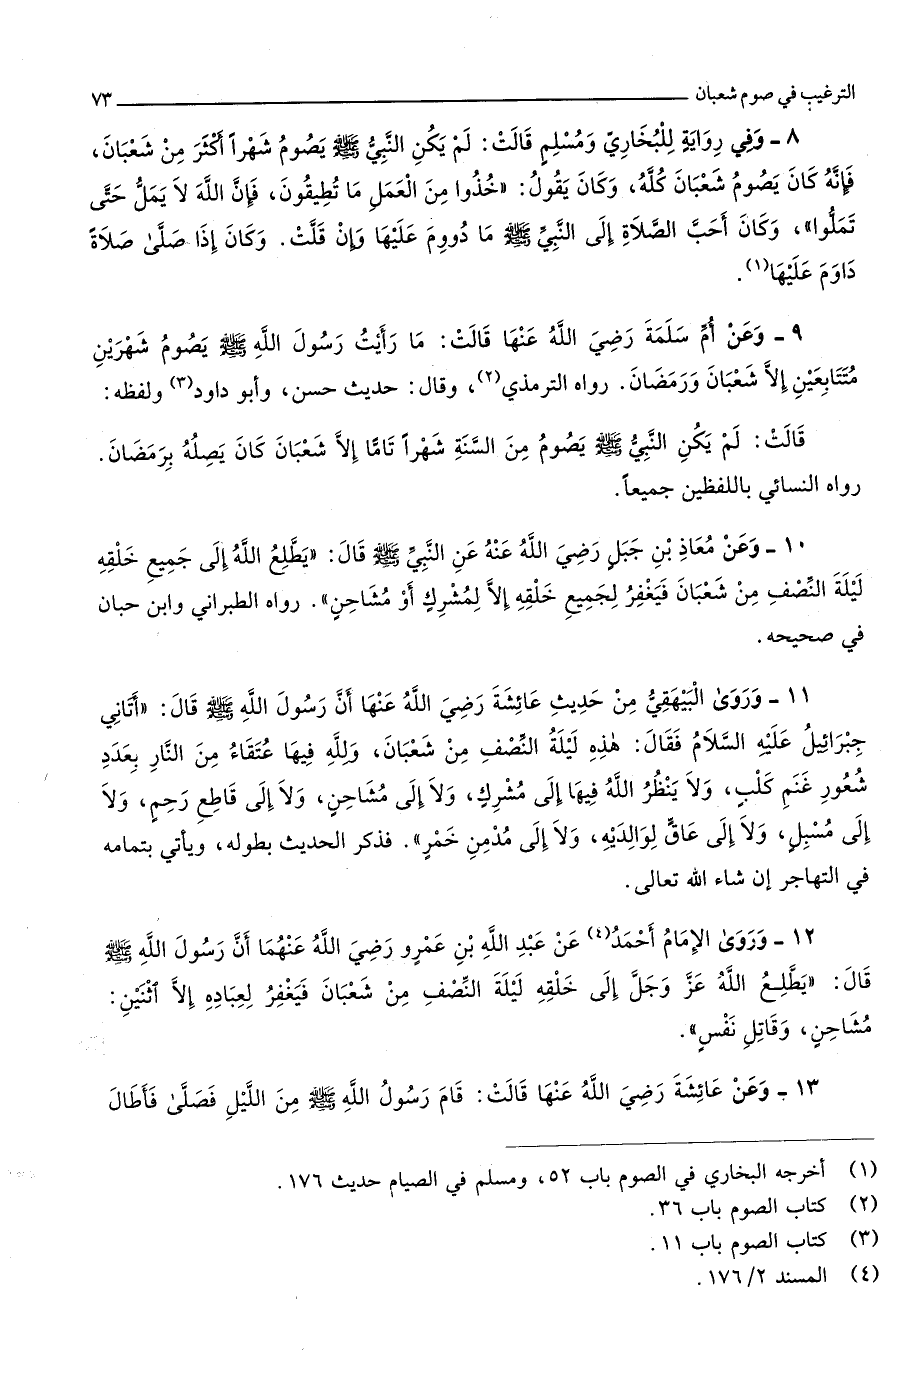 الترغيب في صوم شعبان ٧٣
٨ ـ وَفِي رِوَايَةٍ لِلْبُخَارِيِّ وَمُسْلِمٍ قَالَتْ: لَمْ يَكُنِ النَّبِيُّ ﷺ يَصُومُ شَهْراً أَكْثَرَ مِنْ شَعْبَانَ،
فَإِنَّهُ كَانَ يَصُومُ شَعْبَانَ كُلَّهُ، وَكَانَ يَقُولُ: «خُذُوا مِنَ الْعَمَلِ مَا تُطِيقُونَ، فَإِنَّ اللَّهَ لاَ يَمَلُّ حَتَّى
تَمَلُّوا»، وَكَانَ أَحَبَّ الصَّلاَةِ إِلَى النَّبِيِّ ﷺ مَا دُوومَ عَلَيْهَا وَإِنْ قَلَّتْ. وَكَانَ إِذَا صَلَّىٰ صَلاَةً
دَاوَمَ عَلَيْهَا(١).
٩ ـ وَعَنْ أُمِّ سَلَمَةَ رَضِيَ اللَّهُ عَنْهَا قَالَتْ: مَا رَأَيْتُ رَسُولَ اللَّهِ ﷺ يَصُومُ شَهْرَيْنِ
مُتَتَابِعَيْنِ إِلاَّ شَعْبَانَ وَرَمَضَانَ. رواه الترمذي(٢)، وقال: حديث حسن، وأبو داود(٣) ولفظه:
قَالَتْ: لَمْ يَكُنِ النَّبِيُّ ﷺ يَصُومُ مِنَ السَّنَةِ شَهْراً تَامًّا إِلاَّ شَعْبَانَ كَانَ يَصِلُهُ بِرَمَضَانَ.
رواه النسائي باللفظين جميعاً.
١٠ ـ وَعَنْ مُعَاذِ بْنِ جَبَلٍ رَضِيَ اللَّهُ عَنْهُ عَنِ النَّبِيِّ ﷺ قَالَ: «يَطَّلِعُ اللَّهُ إِلَى جَمِيعِ خَلْقِهِ
لَيْلَةَ النِّصْفِ مِنْ شَعْبَانَ فَيَغْفِرُ لِجَمِيعِ خَلْقِهِ إِلاَّ لِمُشْرِكٍ أَوْ مُشَاحِنٍ». رواه الطبراني وابن حبان
في صحيحه.
١١ ـ وَرَوَىٰ الْبَيْهَقِيُّ مِنْ حَدِيثِ عَائِشَةَ رَضِيَ اللَّهُ عَنْهَا أَنَّ رَسُولَ اللَّهِ ﷺ قَالَ: «أَتَانِي
جِبْرَائِيلُ عَلَيْهِ السَّلاَمُ فَقَالَ: هٰذِهِ لَيْلَةُ النِّصْفِ مِنْ شَعْبَانَ، وَلِلَّهِ فِيهَا عُتَقَاءُ مِنَ النَّارِ بِعَدَدِ
شُعُورِ غَنَمِ كَلْبٍ، وَلاَ يَنْظُرُ اللَّهُ فِيهَا إِلَى مُشْرِكٍ، وَلاَ إِلَى مُشَاحِنٍ، وَلاَ إِلَى قَاطِعِ رَحِمٍ، وَلاَ
إِلَى مُسْبِلٍ، وَلاَ إِلَى عَاقٍّ لِوَالِدَيْهِ، وَلاَ إِلَى مُدْمِنِ خَمْرٍ». فذكر الحديث بطوله، ويأتي بتمامه
في التهاجر إن شاء الله تعالى.
١٢ ـ وَرَوَىٰ الإِمَامُ أَحْمَدُ(٤) عَنْ عَبْدِ اللَّهِ بْنِ عَمْرٍو رَضِيَ اللَّهُ عَنْهُمَا أَنَّ رَسُولَ اللَّهِ ﷺ
قَالَ: «يَطَّلِعُ اللَّهُ عَزَّ وَجَلَّ إِلَى خَلْقِهِ لَيْلَةَ النِّصْفِ مِنْ شَعْبَانَ فَيَغْفِرُ لِعِبَادِهِ إِلاَّ ٱثْنَيْنِ:
مُشَاحِنٍ، وَقَاتِلِ نَفْسٍ».
١٣ ـ وَعَنْ عَائِشَةَ رَضِيَ اللَّهُ عَنْهَا قَالَتْ: قَامَ رَسُولُ اللَّهِ ﷺ مِنَ اللَّيْلِ فَصَلَّىٰ فَأَطَالَ
(١) أخرجه البخاري في الصوم باب ٥٢، ومسلم في الصيام حديث ١٧٦.
(٢) كتاب الصوم باب ٣٦.
(٣) كتاب الصوم باب ١١.
(٤) المسند ٢/ ١٧٦.